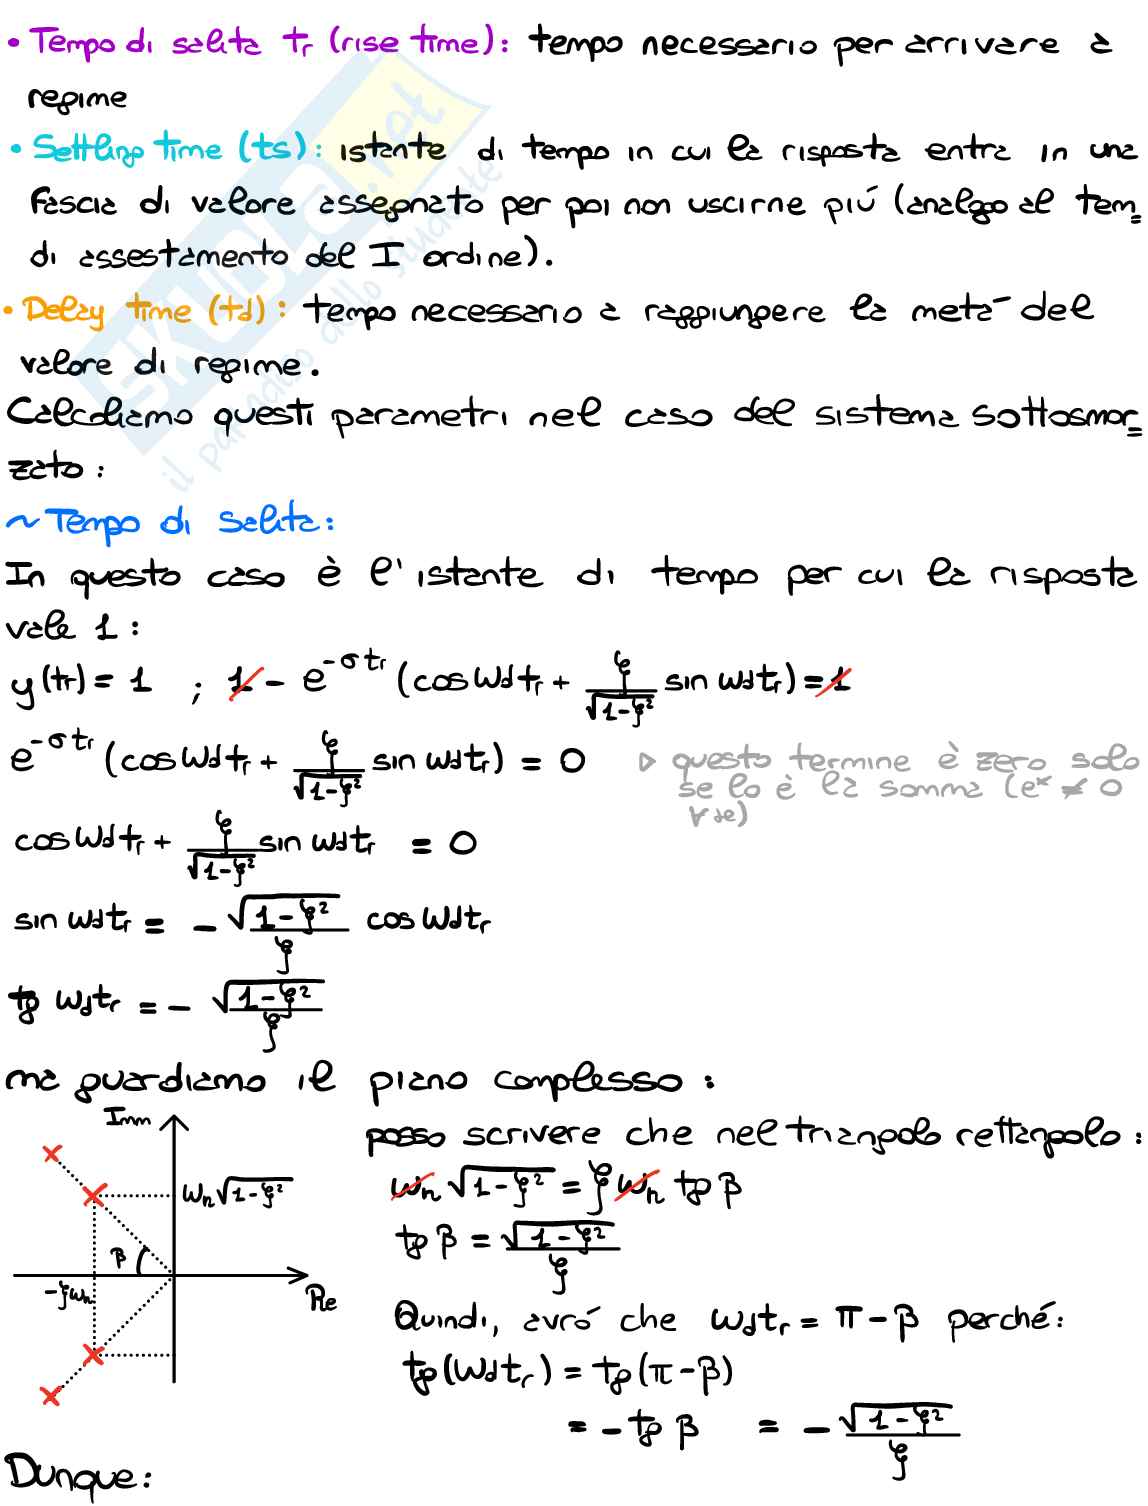 • Tempo di salita tr (rise time): tempo necessario per arrivare a
regime
• Settling time (ts): istante di tempo in cui la risposta entra in una
fascia di valore assegnato per poi non uscirne piú (analogo al tem_
di assestamento del I ordine).
• Delay time (td): tempo necessario a raggiungere la metá del
valore di regime.
Calcoliamo questi parametri nel caso del sistema sottosmor_
zato:
~ Tempo di salita:
In questo caso è l'istante di tempo per cui la risposta
vale 1:
y(tr) = 1 ; 1 - e^{-σtr} (cos ωdtr + ξ/√(1-ξ²) sin ωdtr) = 1
e^{-σtr} (cos ωdtr + ξ/√(1-ξ²) sin ωdtr) = 0 ▷ questo termine è zero solo
se lo è la somma (e^x ≠ 0
∀x)
cos ωdtr + ξ/√(1-ξ²) sin ωdtr = 0
sin ωdtr = - √(1-ξ²)/ξ cos ωdtr
tg ωdtr = - √(1-ξ²)/ξ
ma guardiamo il piano complesso:
Imm
ωn√(1-ξ²)
β
-ξωn
Re
posso scrivere che nel triangolo rettangolo:
ωn √(1-ξ²) = ξ ωn tg β
tg β = √(1-ξ²)/ξ
Quindi, avró che ωdtr = π - β perché:
tg(ωdtr) = tg(π - β)
= - tg β = - √(1-ξ²)/ξ
Dunque:
SKUOLA.net
il paradiso dello studente